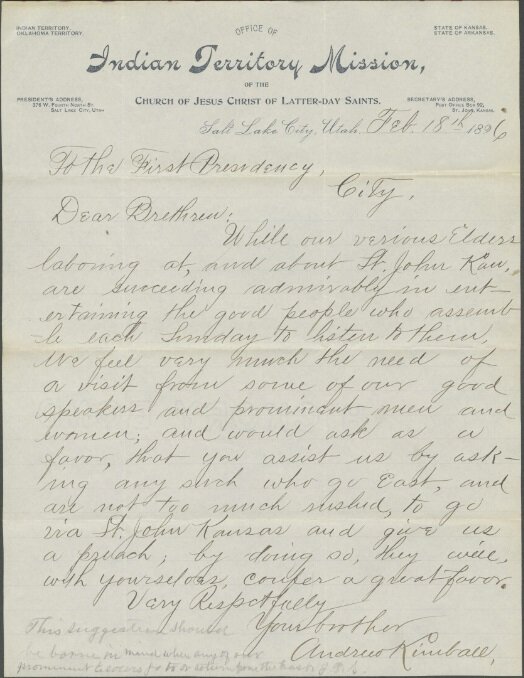 INDIAN TERRITORY.
OKLAHOMA TERRITORY.
STATE OF KANSAS.
STATE OF ARKANSAS.
OFFICE OF
Indian Territory Mission,
OF THE
CHURCH OF JESUS CHRIST OF LATTER-DAY SAINTS.
PRESIDENT'S ADDRESS,
376 W. FOURTH NORTH ST
SALT LAKE CITY, UTAH
SECRETARY'S ADDRESS,
POST OFFICE BOX 92,
ST. JOHN, KANSAS.
Salt Lake City, Utah, Feb. 18th 1896
To the First Presidency,
City,
Dear Brethren:
While our verious Elders
laboring at, and about St. John Kan,
are succeeding admirably in ent-
ertaining the good people who assemb-
le each Sunday to listen to them,
We feel very much the need of
a visit from some of our good
speakers and prominent men and
women; and would ask as a
favor, that you assist us by ask-
ing any such who go East, and
are not too much rushed, to go
via St. John Kansas and give us
a preach; by doing so, they will,
with yourselves, confer a great favor.
Very Respectfully
Your brother
Andrew Kimball,
This suggestion should
be borne in mind when any of our
prominent Elders go to or return from the East